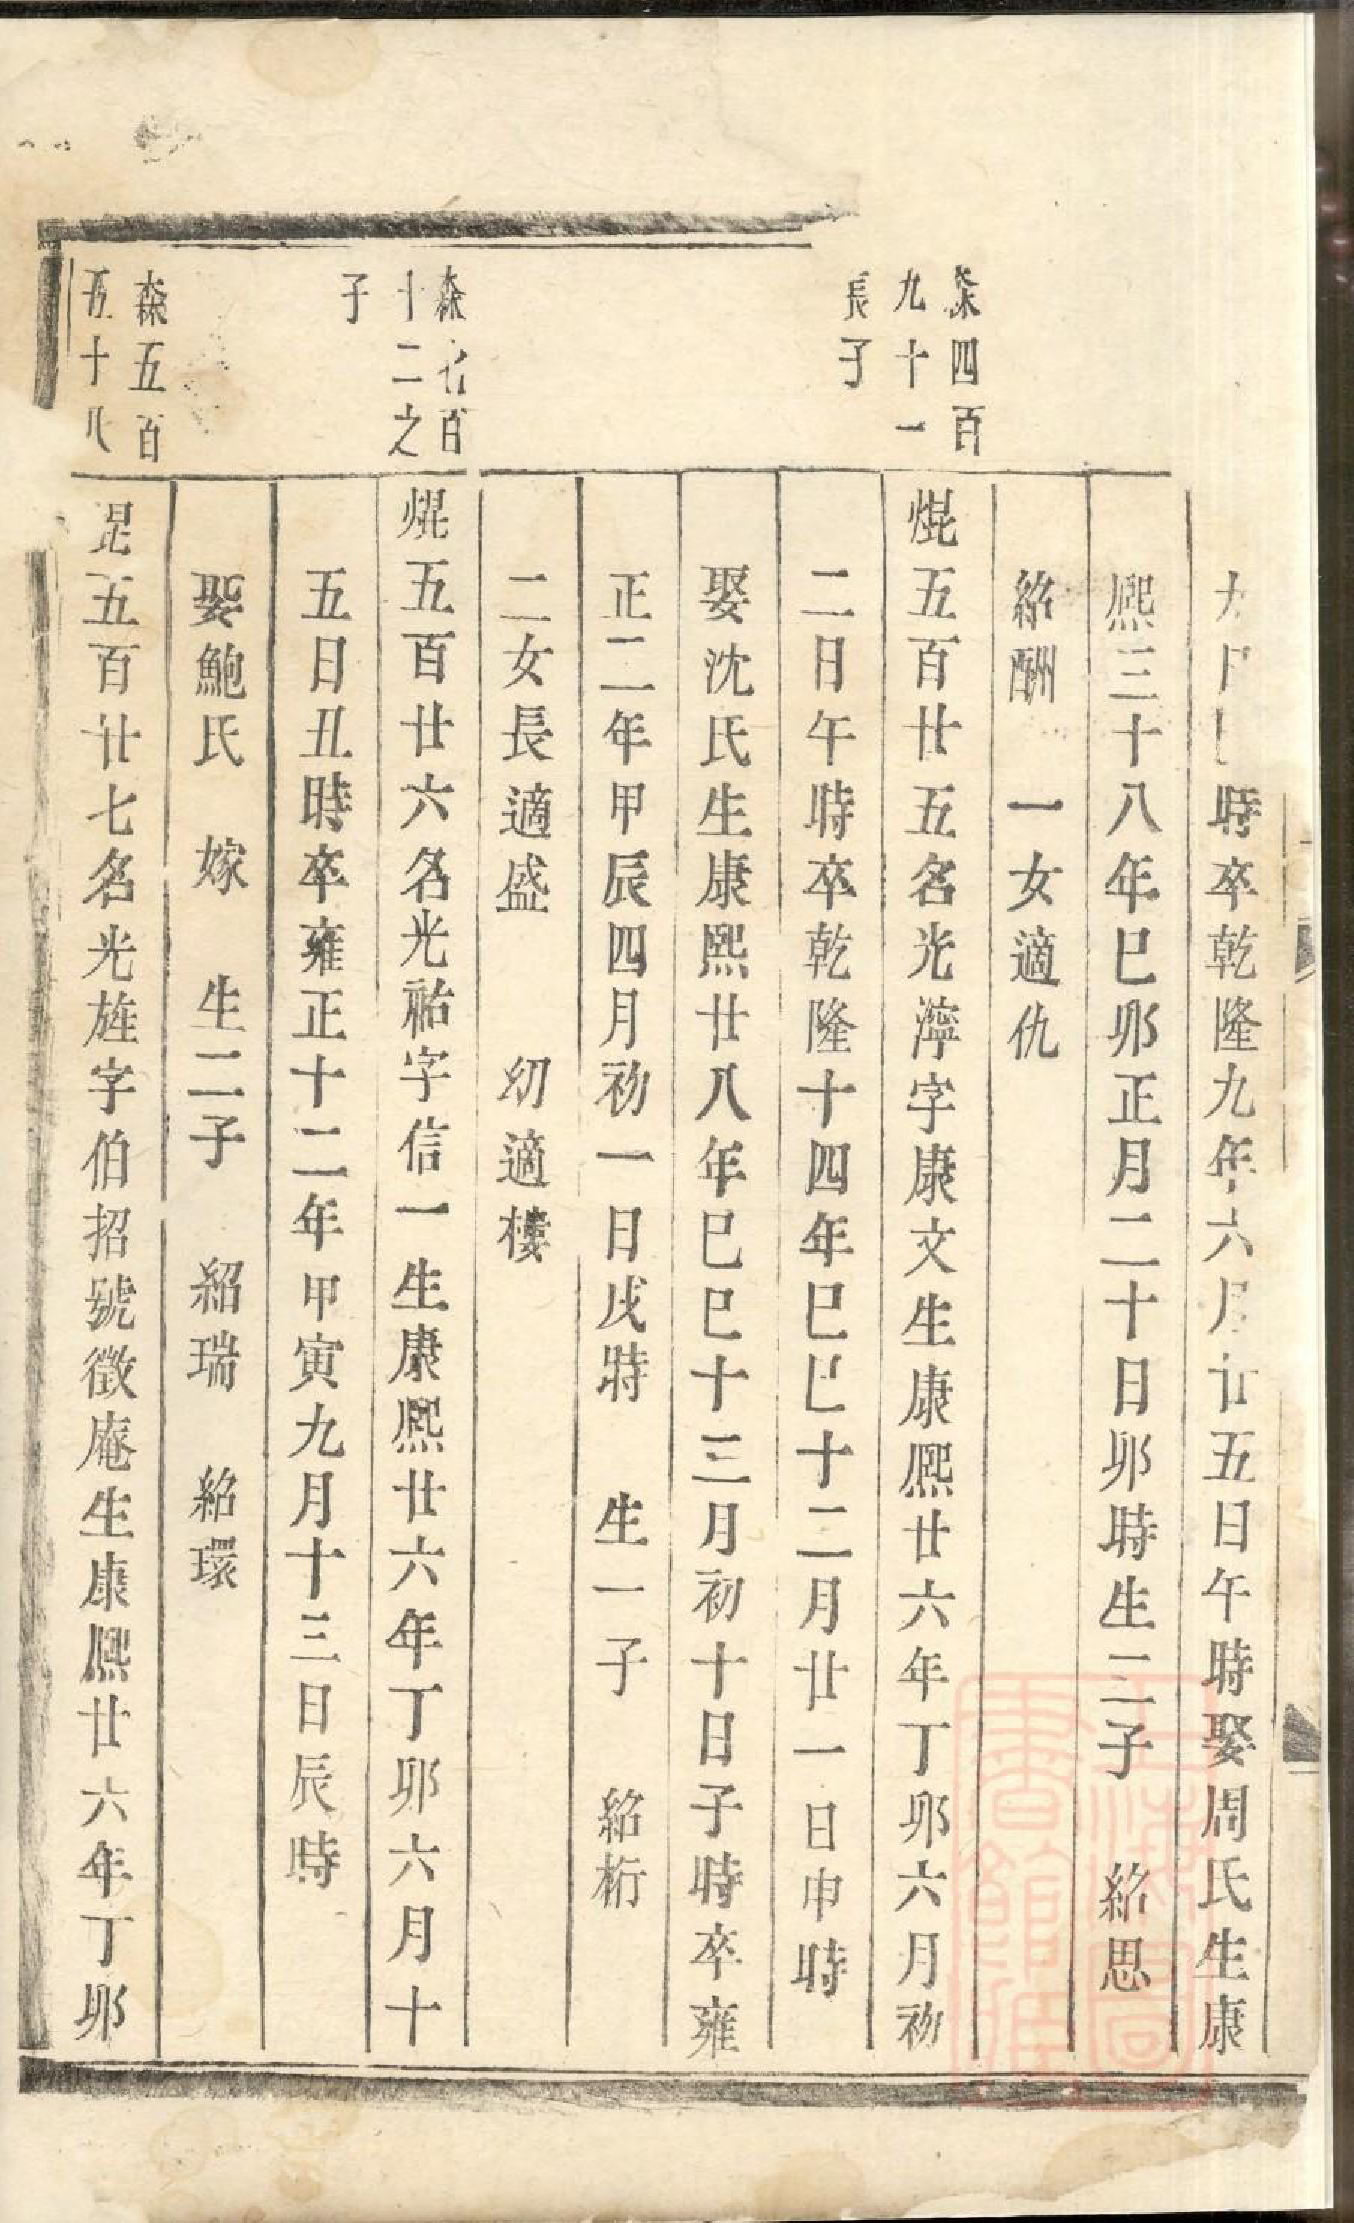 時卒乾隆九年六月廿五日午時娶周氏生康
熙三十八年巳卯正月二十日卯時生二子 紹思
紹酬 一女適仇
森四百
九十一
長子
焜五百廿五名光濘字康文生康熙廿六年丁卯六月初
二日午時卒乾隆十四年巳巳十二月廿一日申時
娶沈氏生康熙廿八年巳巳十三月初十日子時卒雍
正二年甲辰四月初一日戌時 生一子 紹桁
二女長適盛 幼適樓
森 百
十二之
子
焜五百廿六名光祐字信一生康熙廿六年丁卯六月十
五日丑時卒雍正十二年甲寅九月十三日辰時
娶鮑氏 嫁 生二子 紹瑞 紹環
森五百
五十八
昆五百廿七名光旌字伯招號徵庵生康熙廿六年丁卯